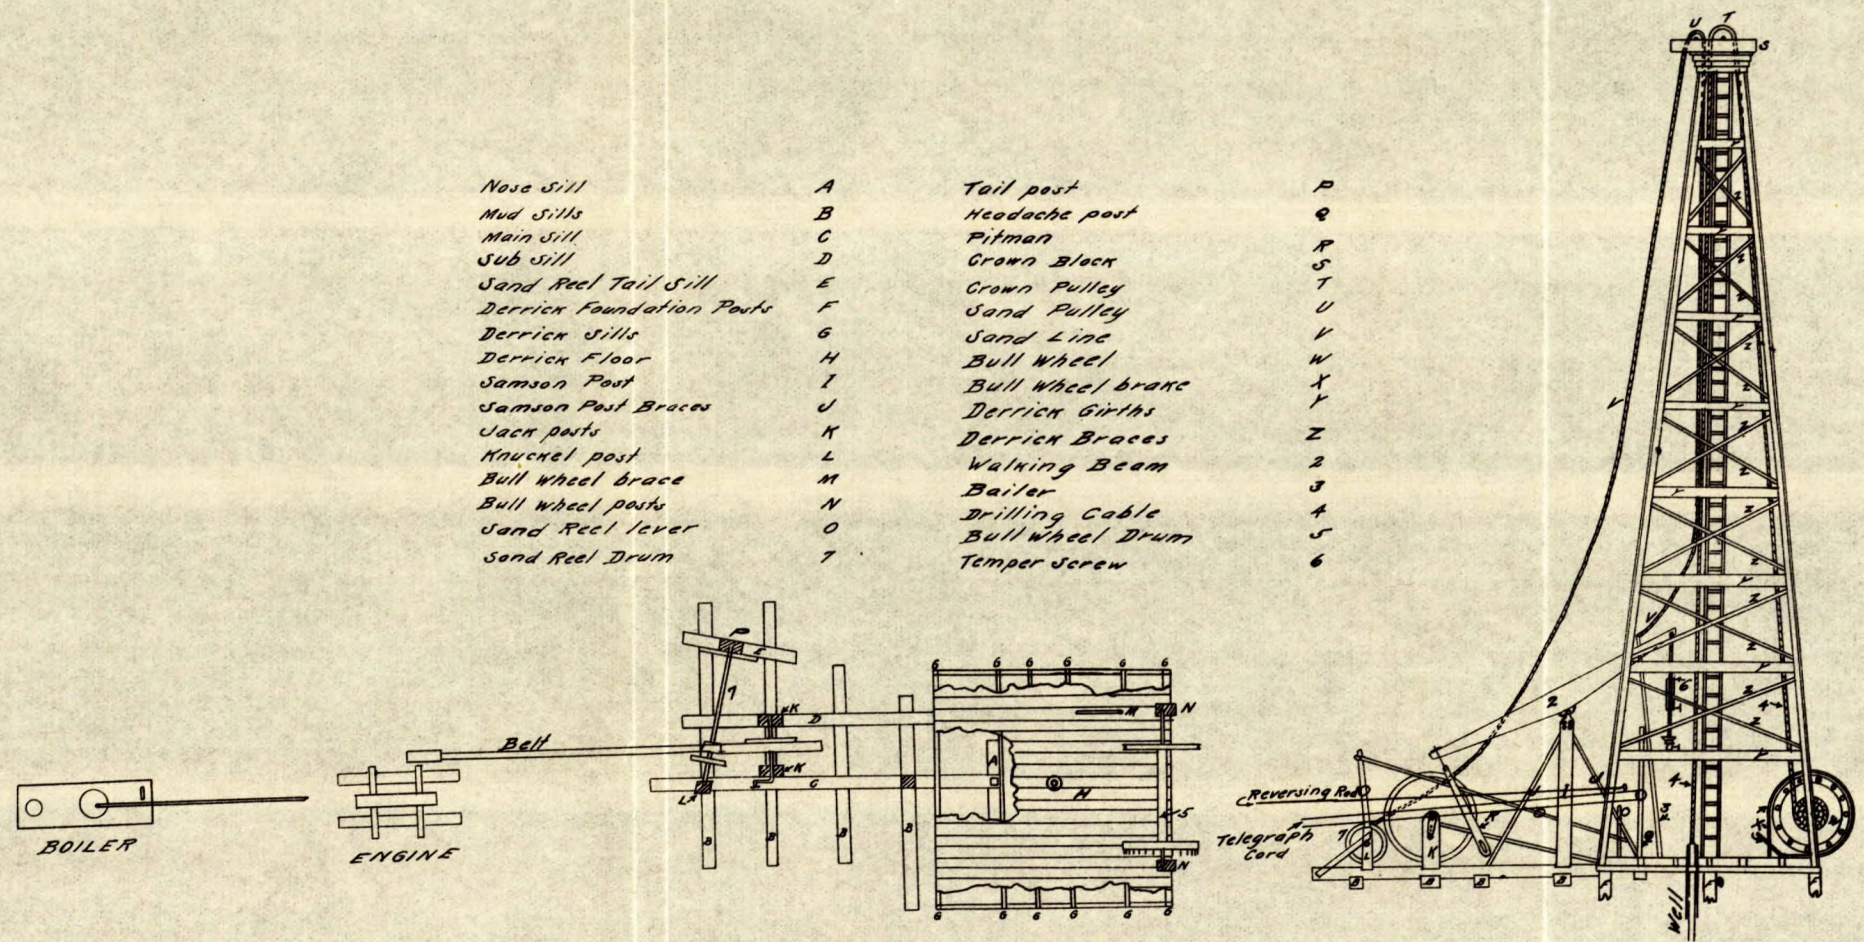 Nose Sill A
Mud Sills B
Main Sill C
Sub Sill D
Sand Reel Tail Sill E
Derrick Foundation Posts F
Derrick Sills G
Derrick Floor H
Samson Post I
Samson Post Braces J
Jack posts K
Knuckel post L
Bull Wheel brace M
Bull Wheel posts N
Sand Reel lever O
Sand Reel Drum 7
Tail post P
Headache post Q
Pitman R
Crown Block S
Crown Pulley T
Sand Pulley U
Sand Line V
Bull Wheel W
Bull Wheel brake X
Derrick Girths Y
Derrick Braces Z
Walking Beam 2
Bailer 3
Drilling Cable 4
Bull Wheel Drum 5
Temper Screw 6
BOILER
ENGINE
Belt
P
E
7
K
D
K
L
C
B B B B
G G G G G G
M N
A
H
5
N
G G G G G G
Reversing Rod
Telegraph
Cord
U T
S
V
V
2
6
4
4
7
K
I
J
Well